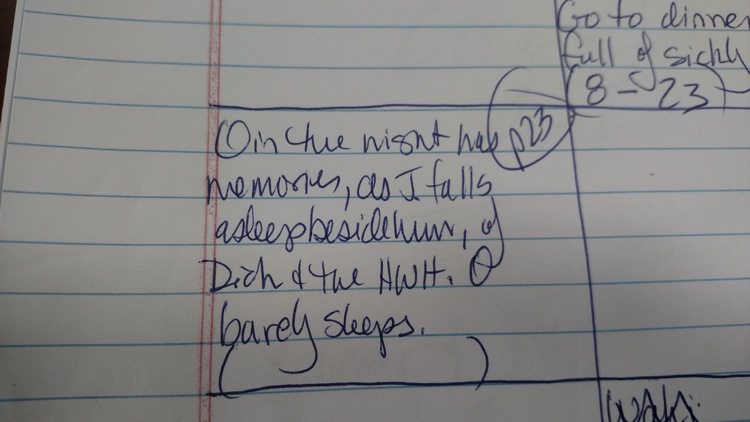 Go to dinner
full of sickly
(8 - 23)
O in the night has p23
memories, as J falls
asleep beside him, of
Dich & the HWH. O
barely sleeps.